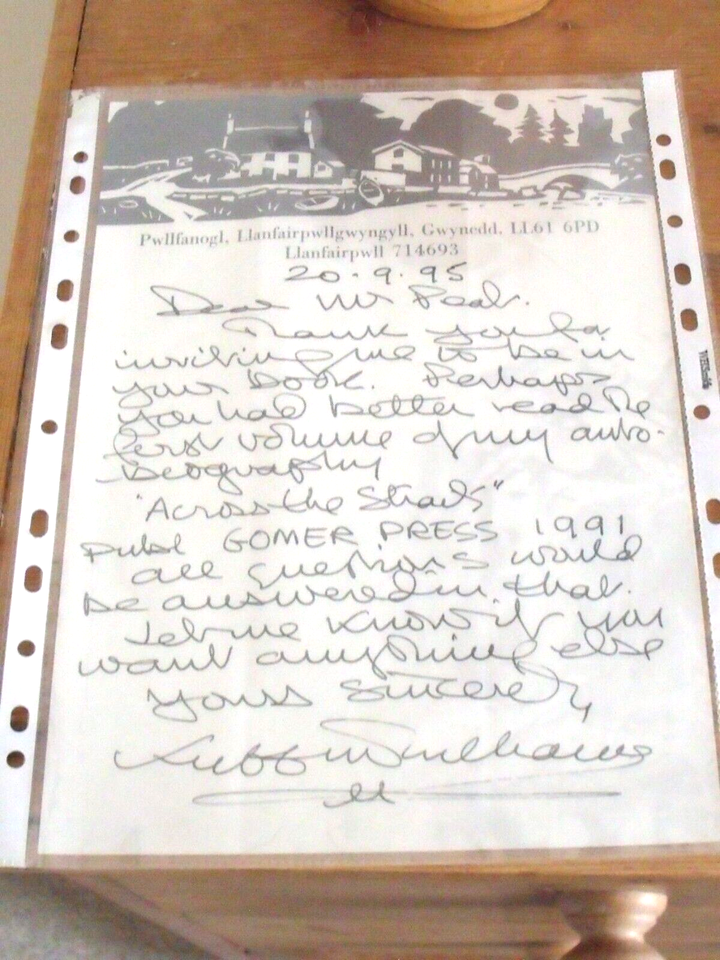 Pwllfanogl, Llanfairpwllgwyngyll, Gwynedd. LL61 6PD
Llanfairpwll 714693
20.9.95
Dear Mr
Thank you for
inviting me to be in
your book. Perhaps
you had better read the
first volume of my auto-
biography
"Across the Straits"
publ GOMER PRESS 1991
all questions would
be answered in that.
Let me know if you
want anything else
Yours Sincerely,
Kyffin Williams
WHSmith